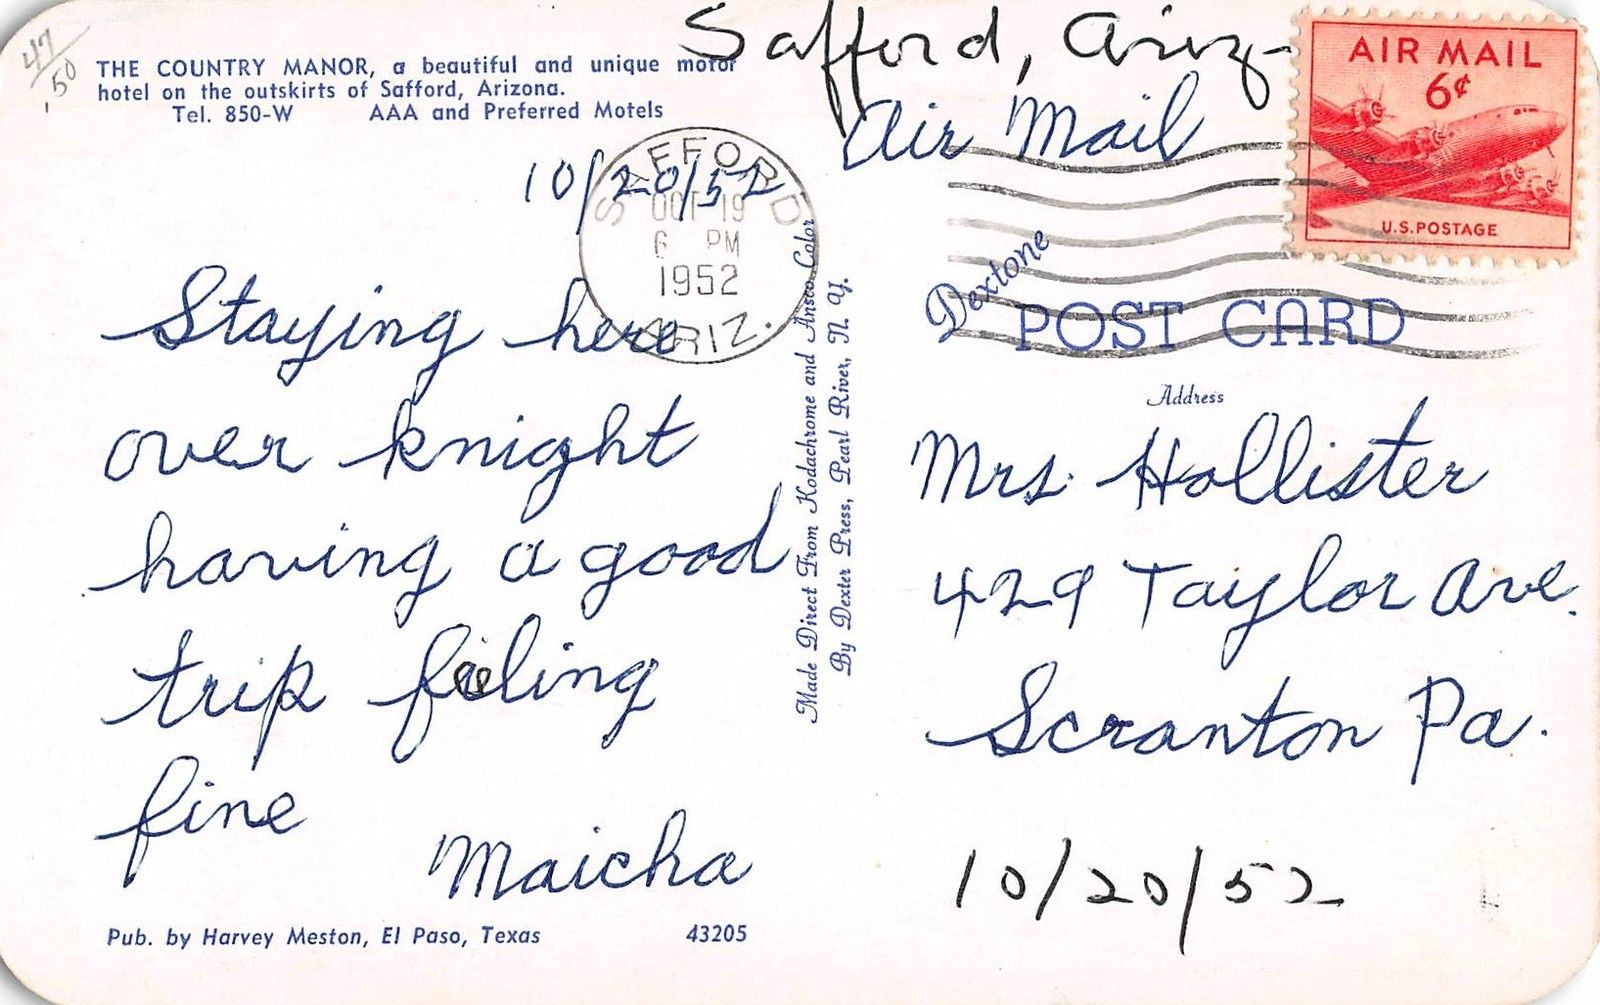 47/.50
THE COUNTRY MANOR, a beautiful and unique motor
hotel on the outskirts of Safford, Arizona.
Tel. 850-W AAA and Preferred Motels
10/20/52
Staying here
over knight
having a good
trip feeling
fine
Maicha
Pub. by Harvey Meston, El Paso, Texas 43205
SAFFORD
OCT 19
6 PM
1952
ARIZ.
Made Direct From Kodachrome and Ansco Color
By Dexter Press, Pearl River, N. Y.
Safford, Ariz-
Air Mail
AIR MAIL
6¢
U.S. POSTAGE
Dextone
POST CARD
Address
Mrs. Hollister
429 Taylor Ave.
Scranton Pa.
10/20/52